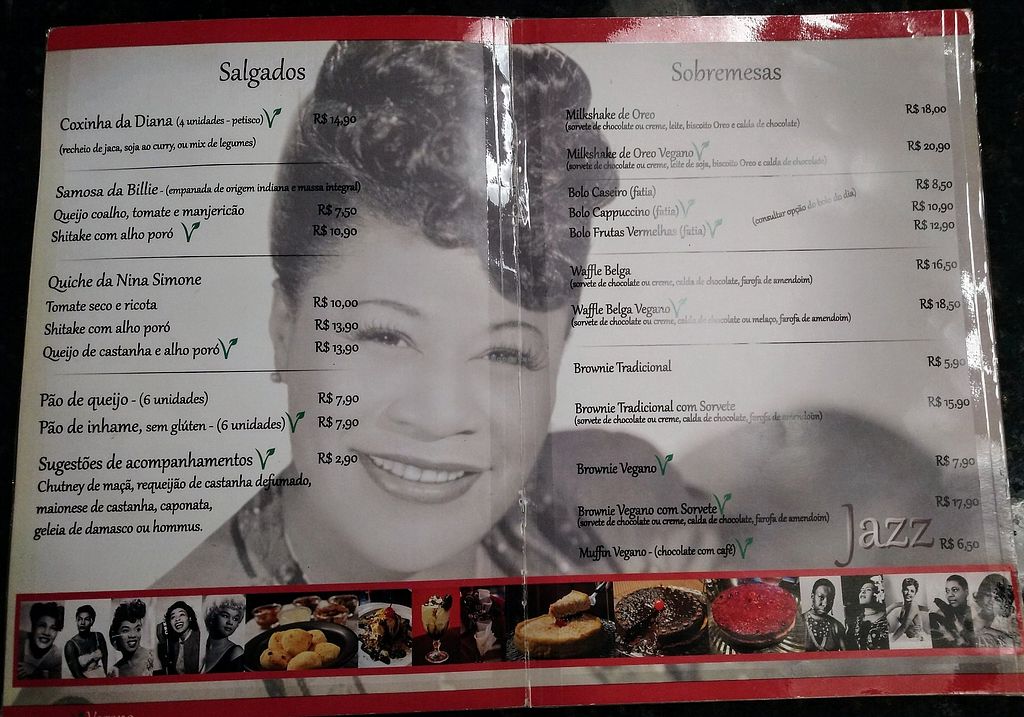 Salgados
Coxinha da Diana (4 unidades - petisco) R$ 14,90
(recheio de jaca, soja ao curry, ou mix de legumes)
Samosa da Billie - (empanada de origem indiana e massa integral)
Queijo coalho, tomate e manjericão R$ 7,50
Shitake com alho poró R$ 10,90
Quiche da Nina Simone
Tomate seco e ricota R$ 10,00
Shitake com alho poró R$ 13,90
Queijo de castanha e alho poró R$ 13,90
Pão de queijo - (6 unidades) R$ 7,90
Pão de inhame, sem glúten - (6 unidades) R$ 7,90
Sugestões de acompanhamentos R$ 2,90
Chutney de maçã, requeijão de castanha defumado,
maionese de castanha, caponata,
geleia de damasco ou hommus.
Sobremesas
Milkshake de Oreo R$ 18,00
(sorvete de chocolate ou creme, leite, biscoito Oreo e calda de chocolate)
Milkshake de Oreo Vegano R$ 20,90
(sorvete de chocolate ou creme, leite de soja, biscoito Oreo e calda de chocolate)
Bolo Caseiro (fatia) R$ 8,50
Bolo Cappuccino (fatia) R$ 10,90
(consultar opção do bolo do dia)
Bolo Frutas Vermelhas (fatia) R$ 12,90
Waffle Belga R$ 16,50
(sorvete de chocolate ou creme, calda de chocolate, farofa de amendoim)
Waffle Belga Vegano R$ 18,50
(sorvete de chocolate ou creme, calda de chocolate ou melaço, farofa de amendoim)
Brownie Tradicional R$ 5,90
Brownie Tradicional com Sorvete R$ 15,90
(sorvete de chocolate ou creme, calda de chocolate, farofa de amendoim)
Brownie Vegano R$ 7,90
Brownie Vegano com Sorvete R$ 17,90
(sorvete de chocolate ou creme, calda de chocolate, farofa de amendoim)
Jazz
Muffin Vegano - (chocolate com café) R$ 6,50
Vegano